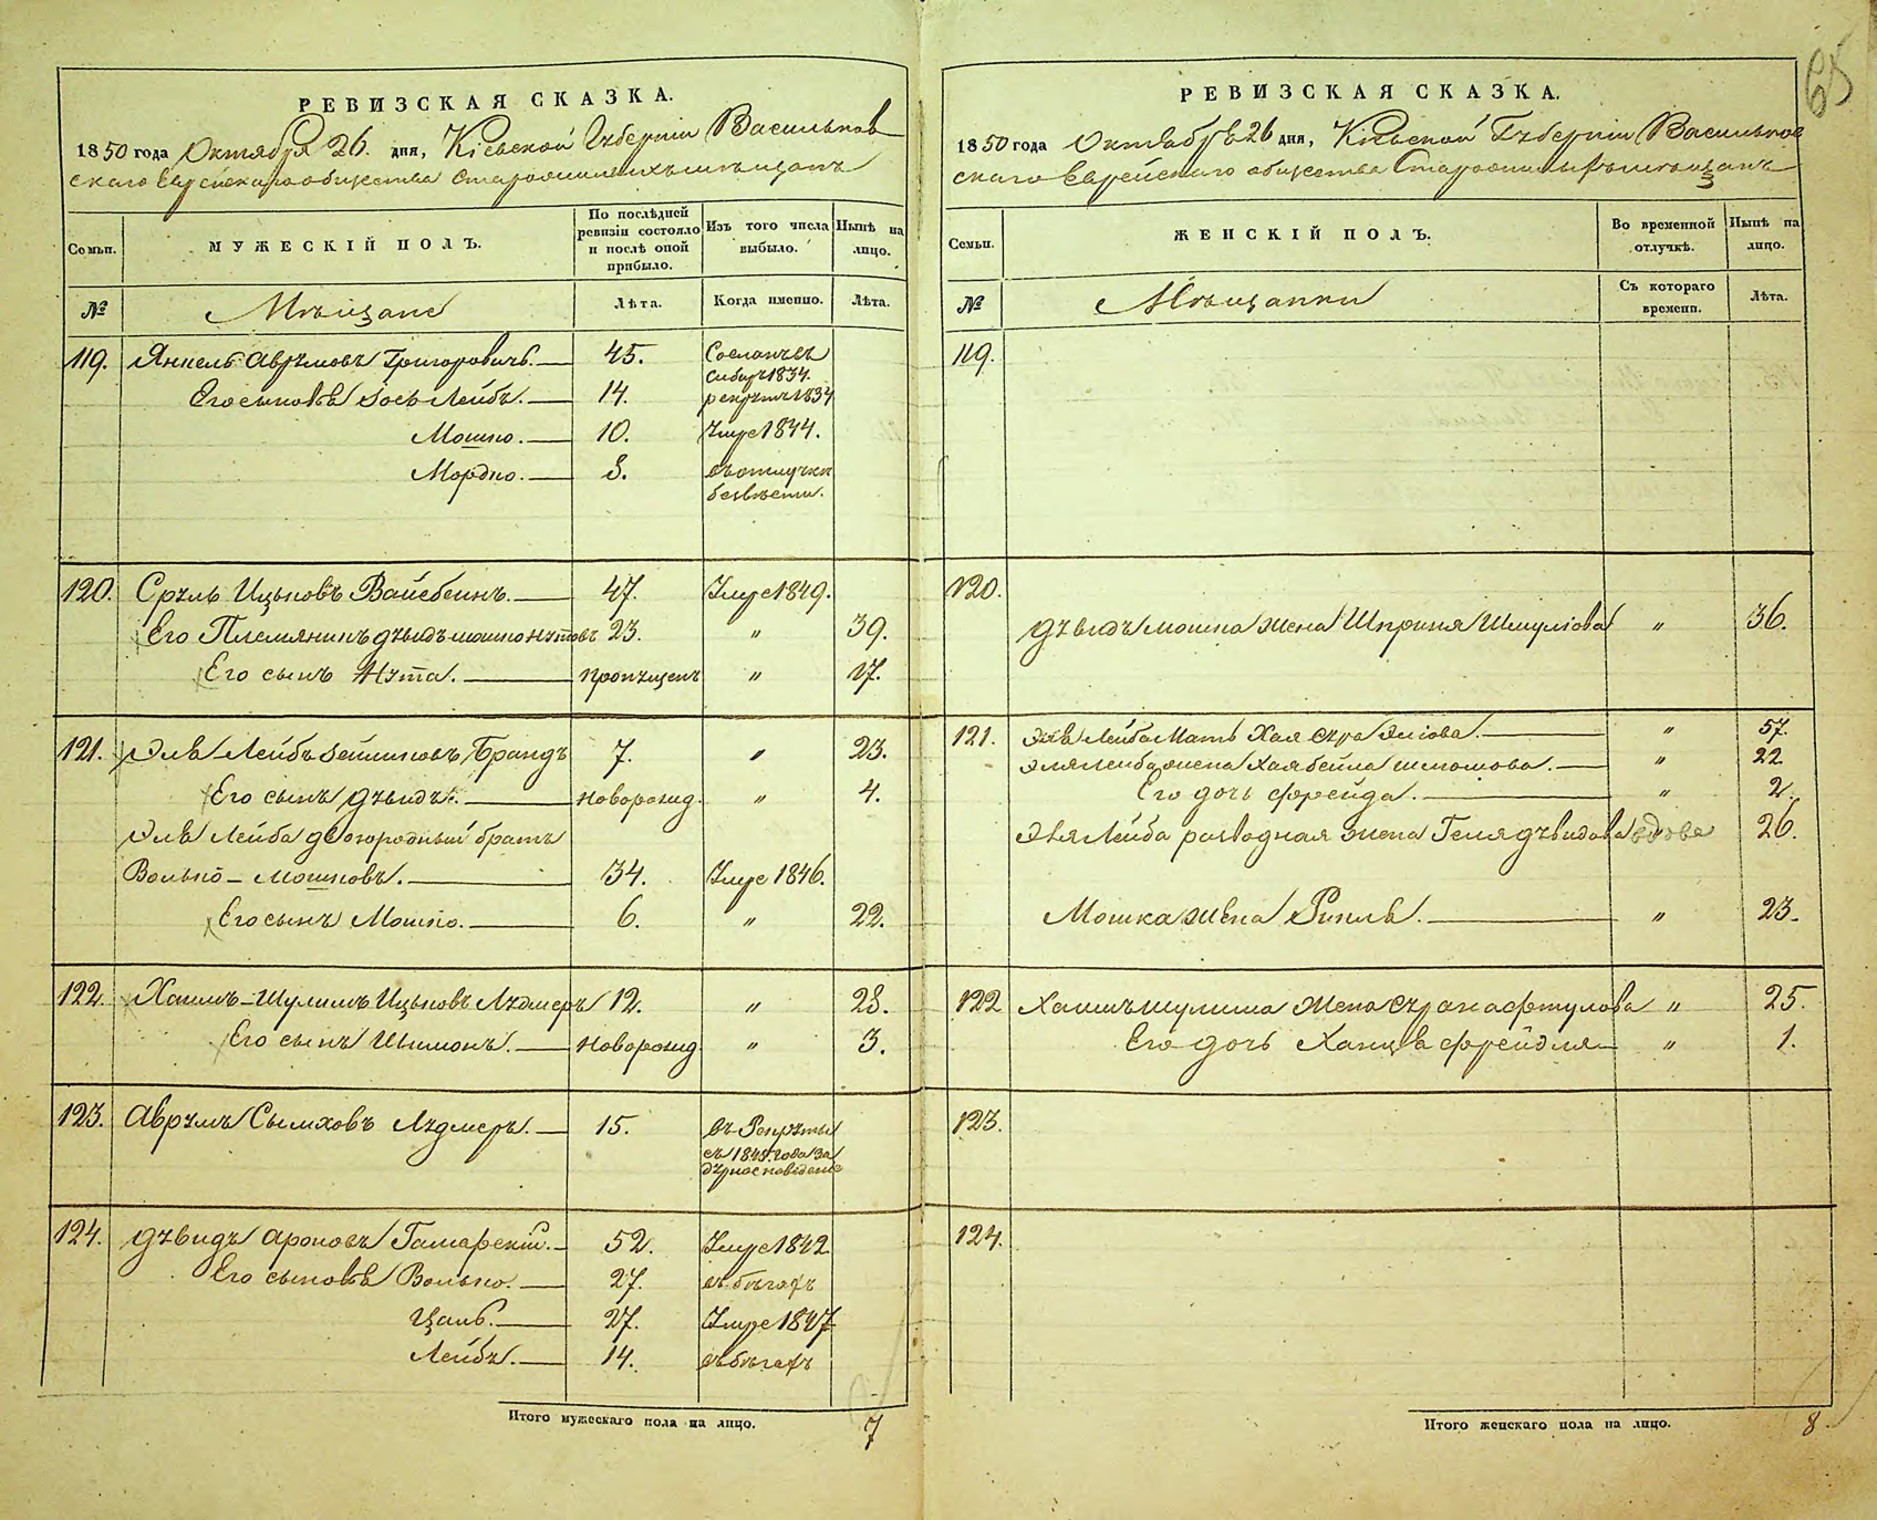 65
РЕВИЗСКАЯ СКАЗКА.
1850 года Октября 26. дня, Кіевской Губерніи Васильков
скаго Еврейскаго общества мѣщанъ
Семьи. МУЖЕСКІЙ ПОЛЪ. По послѣдней ревизіи состояло и послѣ оной прибыло. Изъ того числа выбыло. Нынѣ на лицо.
№ Мѣщане Лѣта. Когда именно. Лѣта.
119. Янкель Аврумовъ Григоровичъ. 45. Сосланъ въ
Сибирь 1834.
Его сыновья Іось Лейбъ. 14. рекрутъ 1834
Мошко. 10. Умре 1844.
Мордко. 8. въ отлучкѣ
безвѣсти.
120. Сруль Ицковъ Вайсбейнъ. 47. Умре 1849.
Его Племянникъ Дувидъ-Мошко Нутовъ 23. " 39.
Его сынъ Нута. пропущенъ " 17.
121. Эля Лейбъ Зейликовъ Брандъ 7. " 23.
Его сынъ Дувидъ. новорожд. " 4.
Эля Лейба двоюродный братъ
Волько - Мошковъ. 34. Умре 1846.
Его сынъ Мошко. 6. " 22.
122. Хаимъ-Шулимъ Ицковъ Лудмеръ 12. " 28.
Его сынъ Шимонъ. новорожд. " 3.
123. Аврумъ Сымховъ Лудмеръ. 15. въ Рекруты
съ 1848. года за
дурное поведеніе
124. Дувидъ Ароновъ Гамарскій. 52. Умре 1842
Его сыновья Волько. 27. въ бѣгахъ
Цаль. 27. Умре 1847
Лейбъ. 14. въ бѣгахъ
Итого мужескаго пола на лицо. 7
РЕВИЗСКАЯ СКАЗКА.
1850 года Октября 26 дня, Кіевской Губерніи Васильков
скаго Еврейскаго общества мѣщанъ
Семьи. ЖЕНСКІЙ ПОЛЪ. Во временной отлучкѣ. Нынѣ на лицо.
№ Мѣщанки Съ котораго времени. Лѣта.
119.
120.
Дувидъ Мошка жена Шприня Шмулова " 36.
121. Эля Лейба Мать Хая Сура Эліова. " 57.
Эля Лейба жена Хая Бейла Шломова. " 22
Его дочь Фрейда. " 2.
Эля Лейба разводная жена Геля Дувидова вдова 26.
Мошка жена Рикля. " 23.
122 Хаимъ Шулима жена Сура Нафтулова " 25.
Его дочь Ханця Фрейдля " 1.
123.
124.
Итого женскаго пола на лицо. 8